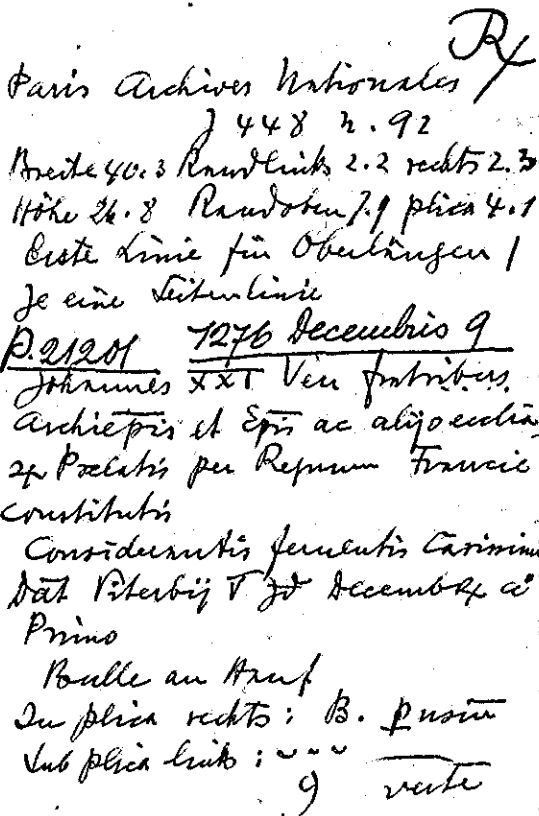 Rx
Paris Archives Nationales
J 448 n. 92
Breite 40.3 Rand links 2.2 rechts 2.3
Höhe 26.8 Rand oben 7.9 plica 4.1
Erste Linie für Oberlängen /
Je eine Seitenlinie
P. 21201 1276 Decembris 9
Johannes XXI Ven fratribus
Archiepis et Epis ac alijs ecclia
rx Prelatis per Regnum Francie
constitutis
Considerantis feruentis Carissimi
Dat Viterbij V Id Decembrx a°
Primo
Bulle an Hanf
In plica rechts: B. p
Sub plica links:
9 verte